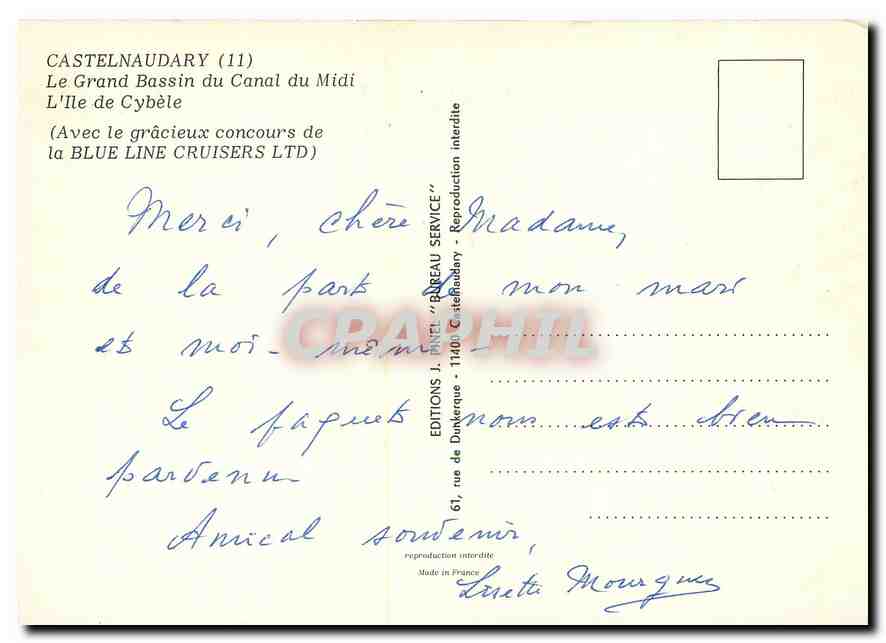 CASTELNAUDARY (11)
Le Grand Bassin du Canal du Midi
L'Ile de Cybèle
(Avec le grâcieux concours de
la BLUE LINE CRUISERS LTD)
Merci, chère Madame,
de la part de mon mari
et moi-même.
Le paquet nous est bien
parvenu
Amical souvenir,
Lisette Mourgues
EDITIONS J. PINEL "BUREAU SERVICE"
61, rue de Dunkerque - 11400 Castelnaudary - Reproduction interdite
reproduction interdite
Made in France
CPAPHIL